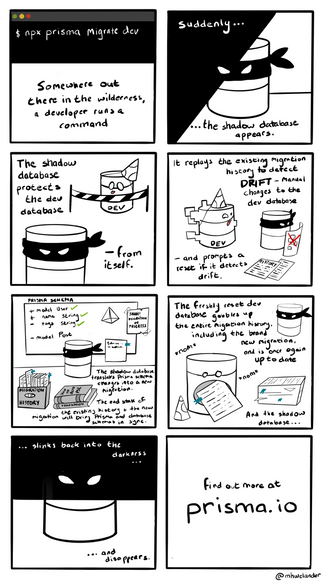 $ npx prisma migrate dev
Somewhere out
there in the wilderness,
a developer runs a
command
Suddenly...
...the shadow database
appears.
The shadow
database
protects
the dev
database
DEV
- from
itself.
It replays the existing migration
history to detect
DRIFT - Manual
changes to the
dev database
DEV
HISTORY
- and prompts a
reset if it detects
drift.
PRISMA SCHEMA
- model User
+ name String
+ tags String
- model Post
MIGRATION
HISTORY
The shadow database
translates Prisma schema
changes into a new
migration.
The end state of
the existing history & the new
migration will bring Prisma and database
schemas in sync.
The freshly reset dev
database gobbles up
the entire migration history,
including the brand
new migration,
and is once again
up to date
*nom*
*nom*
And the shadow
database...
... slinks back into the
darkness
...
... and
disappears.
find out more at
prisma.io
@mhwelander